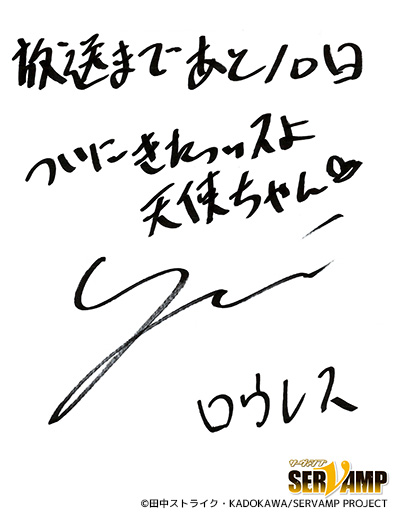 放送まであと10日
ついにきたっスよ
天使ちゃん♡
ロウレス
サーヴァンプ
SERVAMP
©田中ストライク・KADOKAWA/SERVAMP PROJECT